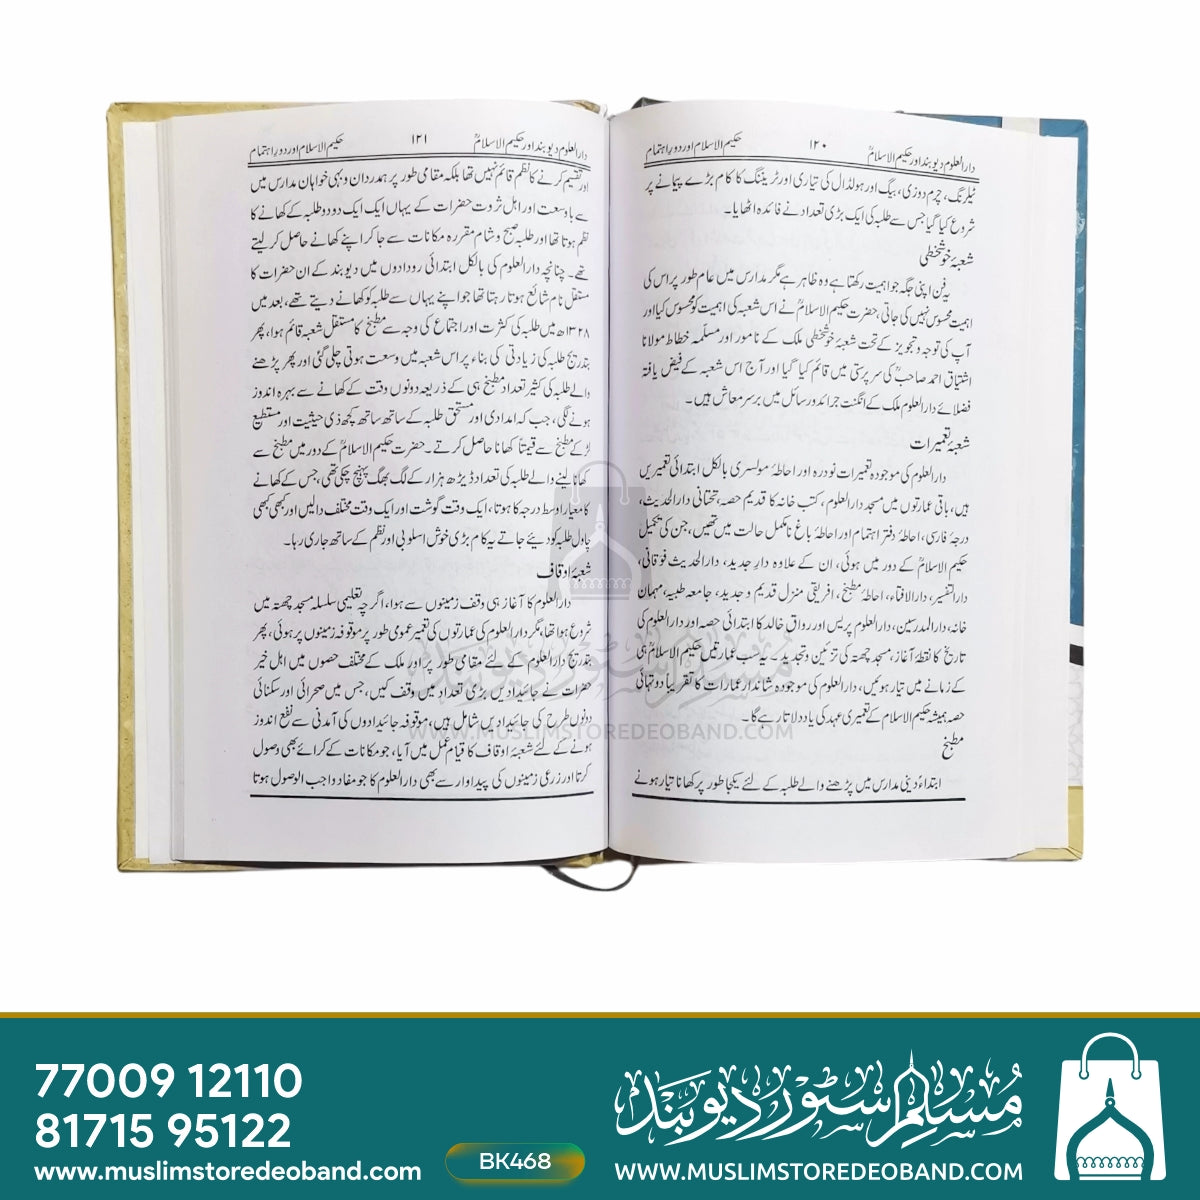 دارالعلوم دیوبند اور حکیم الاسلامؒ ۱۲۰ حکیم الاسلام اور دورِ اہتمام
ٹیلرنگ، چرم دوزی، بیگ اور ہولڈال کی تیاری اور ٹریننگ کا کام بڑے پیمانے پر
شروع کیا گیا جس سے طلبہ کی ایک بڑی تعداد نے فائدہ اٹھایا۔
شعبۂ خوشخطی
یہ فن اپنی جگہ جو اہمیت رکھتا ہے وہ ظاہر ہے مگر مدارس میں عام طور پر اس کی
اہمیت محسوس نہیں کی جاتی، حضرت حکیم الاسلامؒ نے اس شعبہ کی اہمیت کو محسوس کیا اور
آپ کی توجہ و تجویز کے تحت شعبۂ خوشخطی ملک کے نامور اور مسلّمہ خطاط مولانا
اشتیاق احمد صاحبؒ کی سرپرستی میں قائم کیا گیا اور آج اس شعبہ کے فیض یافتہ
فضلائے دارالعلوم ملک کے انگنت جرائد و رسائل میں برسر معاش ہیں۔
شعبۂ تعمیرات
دارالعلوم کی موجودہ تعمیرات نودرہ اور احاطۂ مولسری بالکل ابتدائی تعمیریں
ہیں، باقی عمارتوں میں مسجد دارالعلوم، کتب خانہ کا قدیم حصہ، تحتانی دارالحدیث،
درجۂ فارسی، احاطۂ دفتر اہتمام اور احاطۂ باغ نامکمل حالت میں تھیں، جن کی تکمیل
حکیم الاسلامؒ کے دور میں ہوئی، ان کے علاوہ دار جدید، دارالحدیث فوقانی،
دارالتفسیر، دارالافتاء، احاطۂ مطبخ، افریقی منزل قدیم و جدید، جامعہ طبیہ، مہمان
خانہ، دارالمدرسین، دارالعلوم پریس اور رواق خالد کا ابتدائی حصہ اور دارالعلوم کی
تاریخ کا نقطۂ آغاز، مسجد چھتہ کی تزئین و تجدید۔ یہ سب عمارتیں حکیم الاسلامؒ ہی
کے زمانے میں تیار ہوئیں، دارالعلوم کی موجودہ شاندار عمارات کا تقریباً دو تہائی
حصہ ہمیشہ حکیم الاسلام کے تعمیری عہد کی یاد دلاتا رہے گا۔
مطبخ
ابتداءً دینی مدارس میں پڑھنے والے طلبہ کے لئے یکجا طور پر کھانا تیار ہونے
دارالعلوم دیوبند اور حکیم الاسلامؒ ۱۲۱ حکیم الاسلام اور دورِ اہتمام
اور تقسیم کرنے کا نظم قائم نہیں تھا بلکہ مقامی طور پر ہمدردان و بہی خواہان مدارس میں
سے باوسعت اور اہل ثروت حضرات کے یہاں ایک ایک دو دو طلبہ کے کھانے کا
نظم ہوتا تھا اور طلبہ صبح و شام مقررہ مکانات سے جا کر اپنے کھانے حاصل کر لیتے
تھے۔ چنانچہ دارالعلوم کی بالکل ابتدائی رودادوں میں دیوبند کے ان حضرات کا
مستقل نام شائع ہوتا رہتا تھا جو اپنے یہاں سے طلبہ کو کھانے دیتے تھے، بعد میں
۱۳۲۸ھ میں طلبہ کی کثرت اور اجتماع کی وجہ سے مطبخ کا مستقل شعبہ قائم ہوا، پھر
بتدریج طلبہ کی زیادتی کی بناء پر اس شعبہ میں وسعت ہوتی چلی گئی اور پھر پڑھنے
والے طلبہ کی کثیر تعداد مطبخ ہی کے ذریعہ دونوں وقت کے کھانے سے بہرہ اندوز
ہونے لگی، جب کہ امدادی اور مستحق طلبہ کے ساتھ ساتھ کچھ ذی حیثیت اور مستطیع
لڑکے مطبخ سے قیمتاً کھانا حاصل کرتے۔ حضرت حکیم الاسلامؒ کے دور میں مطبخ سے
کھانا لینے والے طلبہ کی تعداد ڈیڑھ ہزار کے لگ بھگ پہنچ چکی تھی، جس کے کھانے
کا معیار اوسط درجہ کا ہوتا، ایک وقت گوشت اور ایک وقت مختلف دالیں اور کبھی کبھی
چاول طلبہ کو دیئے جاتے یہ کام بڑی خوش اسلوبی اور نظم کے ساتھ جاری رہا۔
شعبۂ اوقاف
دارالعلوم کا آغاز ہی وقف زمینوں سے ہوا، اگرچہ تعلیمی سلسلہ مسجد چھتہ میں
شروع ہوا تھا، مگر دارالعلوم کی عمارتوں کی تعمیر عمومی طور پر موقوفہ زمینوں پر ہوئی، پھر
بتدریج دارالعلوم کے لئے مقامی طور پر اور ملک کے مختلف حصوں میں اہل خیر
حضرات نے جائیدادیں بڑی تعداد میں وقف کیں، جس میں صحرائی اور سکنائی
دونوں طرح کی جائیدادیں شامل ہیں، موقوفہ جائیدادوں کی آمدنی سے نفع اندوز
ہونے کے لئے شعبۂ اوقاف کا قیام عمل میں آیا، جو مکانات کے کرائے بھی وصول
کرتا اور زرعی زمینوں کی پیداوار سے بھی دارالعلوم کا جو مفاد واجب الوصول ہوتا
مسلم سٹور دیوبند
WWW.MUSLIMSTOREDEOBAND.COM
77009 12110
81715 95122
www.muslimstoredeoband.com
BK468
مُسلم سٹور دیوبند
WWW.MUSLIMSTOREDEOBAND.COM